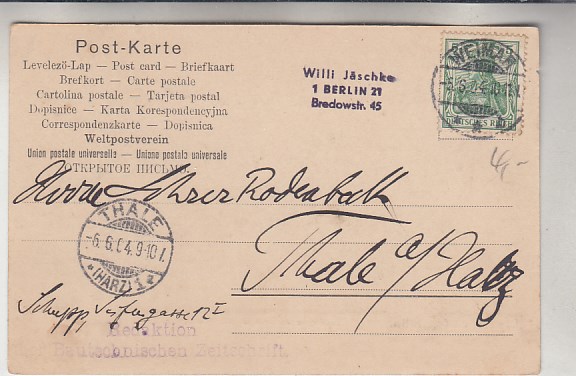 Post-Karte
Levelező-Lap — Post card — Briefkaart
Brefkort — Carte postale
Cartolina postale — Tarjeta postal
Dopisnice — Karta Korespondencyjna
Correspondenzkarte — Dopisnica
Weltpostverein
Union postale universelle — Unione postale universale
ОТКРЫТОЕ ПИСЬМО.
Willi Jäschke
1 BERLIN 21
Bredowstr. 45
WEIMAR
DEUTSCHES REICH
4,-
Herrn Lehrer Rodenbeck
THALE
-6.6.04.9-10V.
*(HARZ)1*
Thale a/Harz
Redaktion
Deutschnischen Zeitschrift.